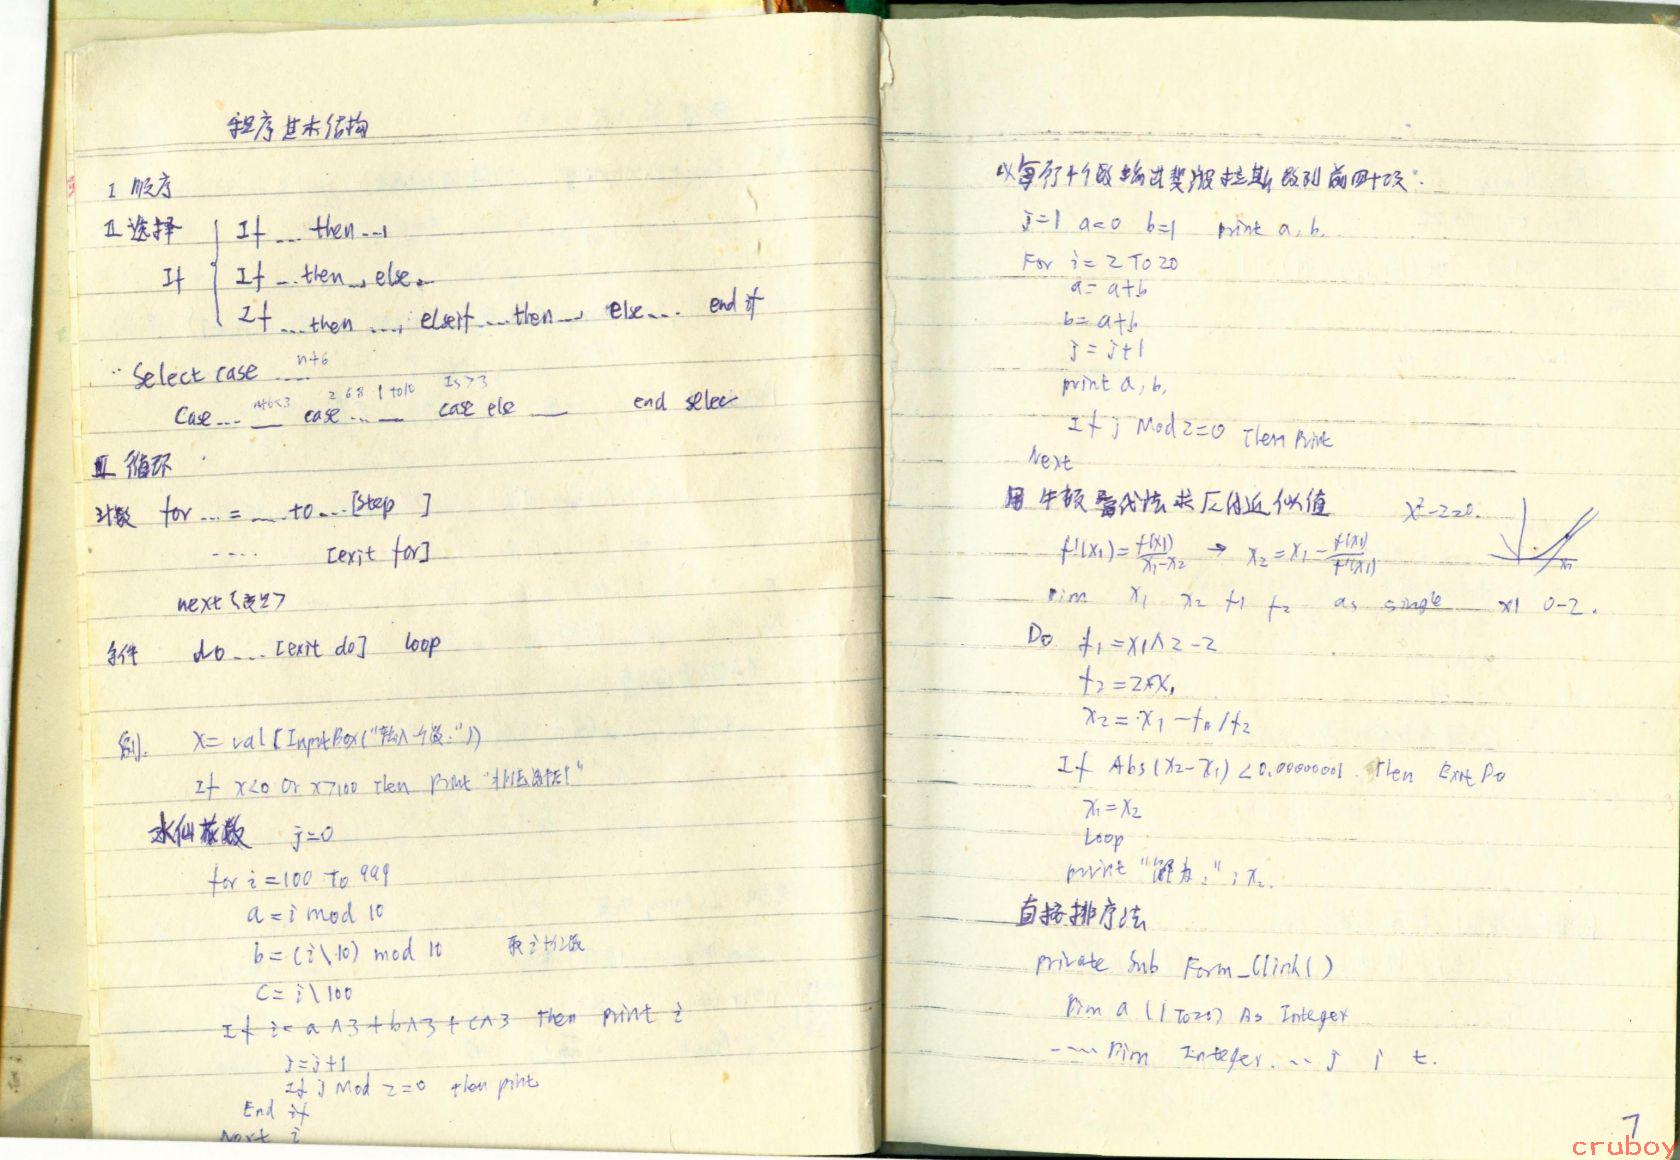 程序基本结构
I 顺序
II 选择
If ... then ...
If
If ... then ..., else ...
If ... then ..., elseif ... then ..., else ... end if
Select case ....
n+6
Case ... case ... case else end selec
n+6<3 2 6 8 1 to 10 Is>3
III 循环
计数 for ... = ... to ... [step ]
.... [exit for]
next <变量>
条件 do ... [exit do] loop
例. x= val[InputBox("输入一个数:"))
If x<0 Or x>100 Then print
水仙花数 j=0
for i=100 To 999
a = i mod 10
b = (i\10) mod 10 取i十位数
c = i\100
If i= a^3+b^3+c^3 Then print i
j=j+1
If j Mod 2=0 then print
End if
Next i
以每行4个数输出斐波拉契数列前四十项.
j=1 a=0 b=1 print a, b,
For i=2 To 20
a= a+b
b= a+b
j= j+1
print a, b,
If j Mod 2=0 Then Print
Next
用牛顿迭代法求√2的近似值 x²-2=0.
f'(x1)=f(x1)/(x1-x2) → x2=x1-f(x1)/f'(x1)
Dim x1 x2 f1 f2 as single x1 0-2.
Do f1=x1^2-2
f2=2*x1
x2=x1-f1/f2
If Abs(x2-x1)<0.00000001 Then Exit Do
x1=x2
Loop
print "解为:"; x2.
直接排序法
private Sub Form_Click()
Dim a (1 To 20) As Integer
.... Dim Integer ... j i t.
7
cruboy